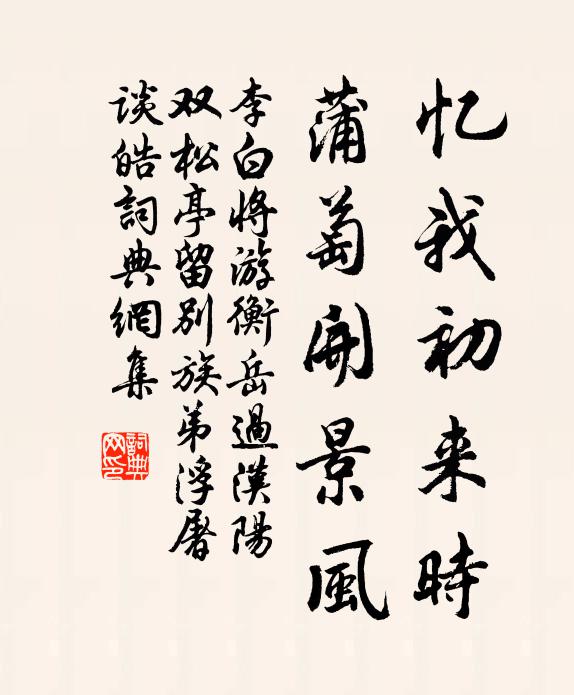 忆我初来時
蒲萄開景風
李白将游衡岳過漢陽
双松亭留别族弟浮屠
谈皓詞典網集
詞典网印